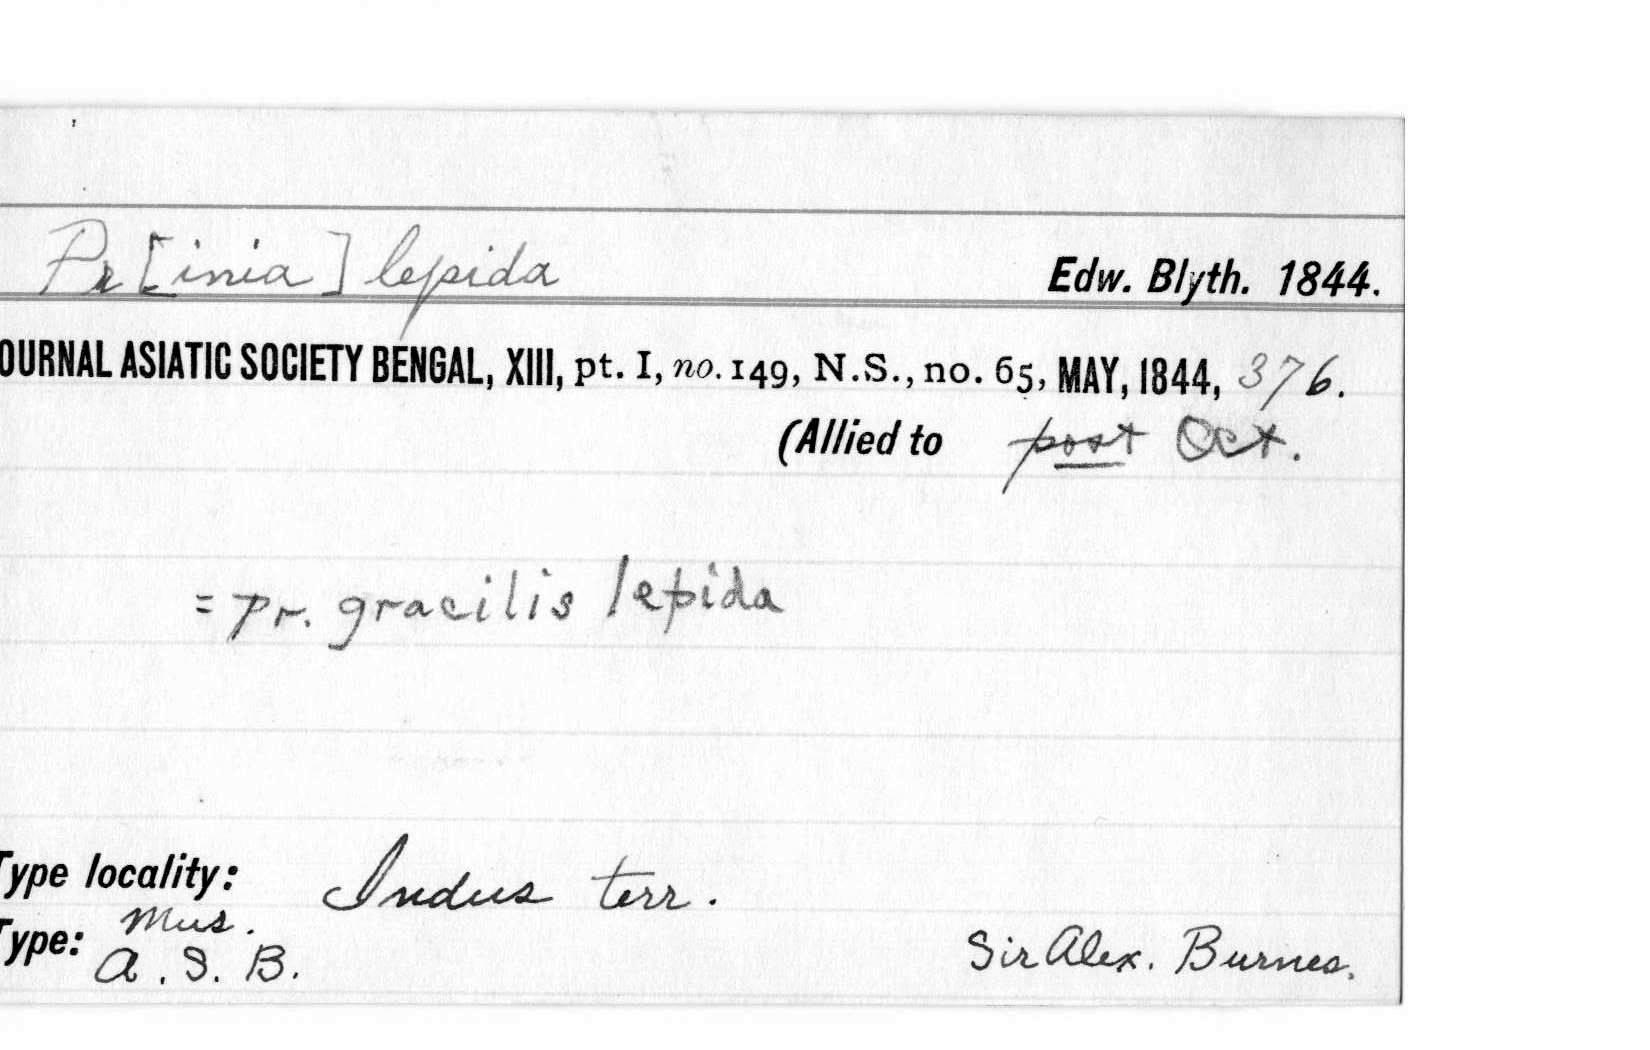 Pr[inia] lepida Edw. Blyth. 1844.
OURNAL ASIATIC SOCIETY BENGAL, XIII, pt. I, no. 149, N.S., no. 65, MAY, 1844, 376.
(Allied to post Oct.
= Pr. gracilis lepida
Type locality: Indus terr.
Type: Mus.
A. S. B. Sir Alex. Burnes.